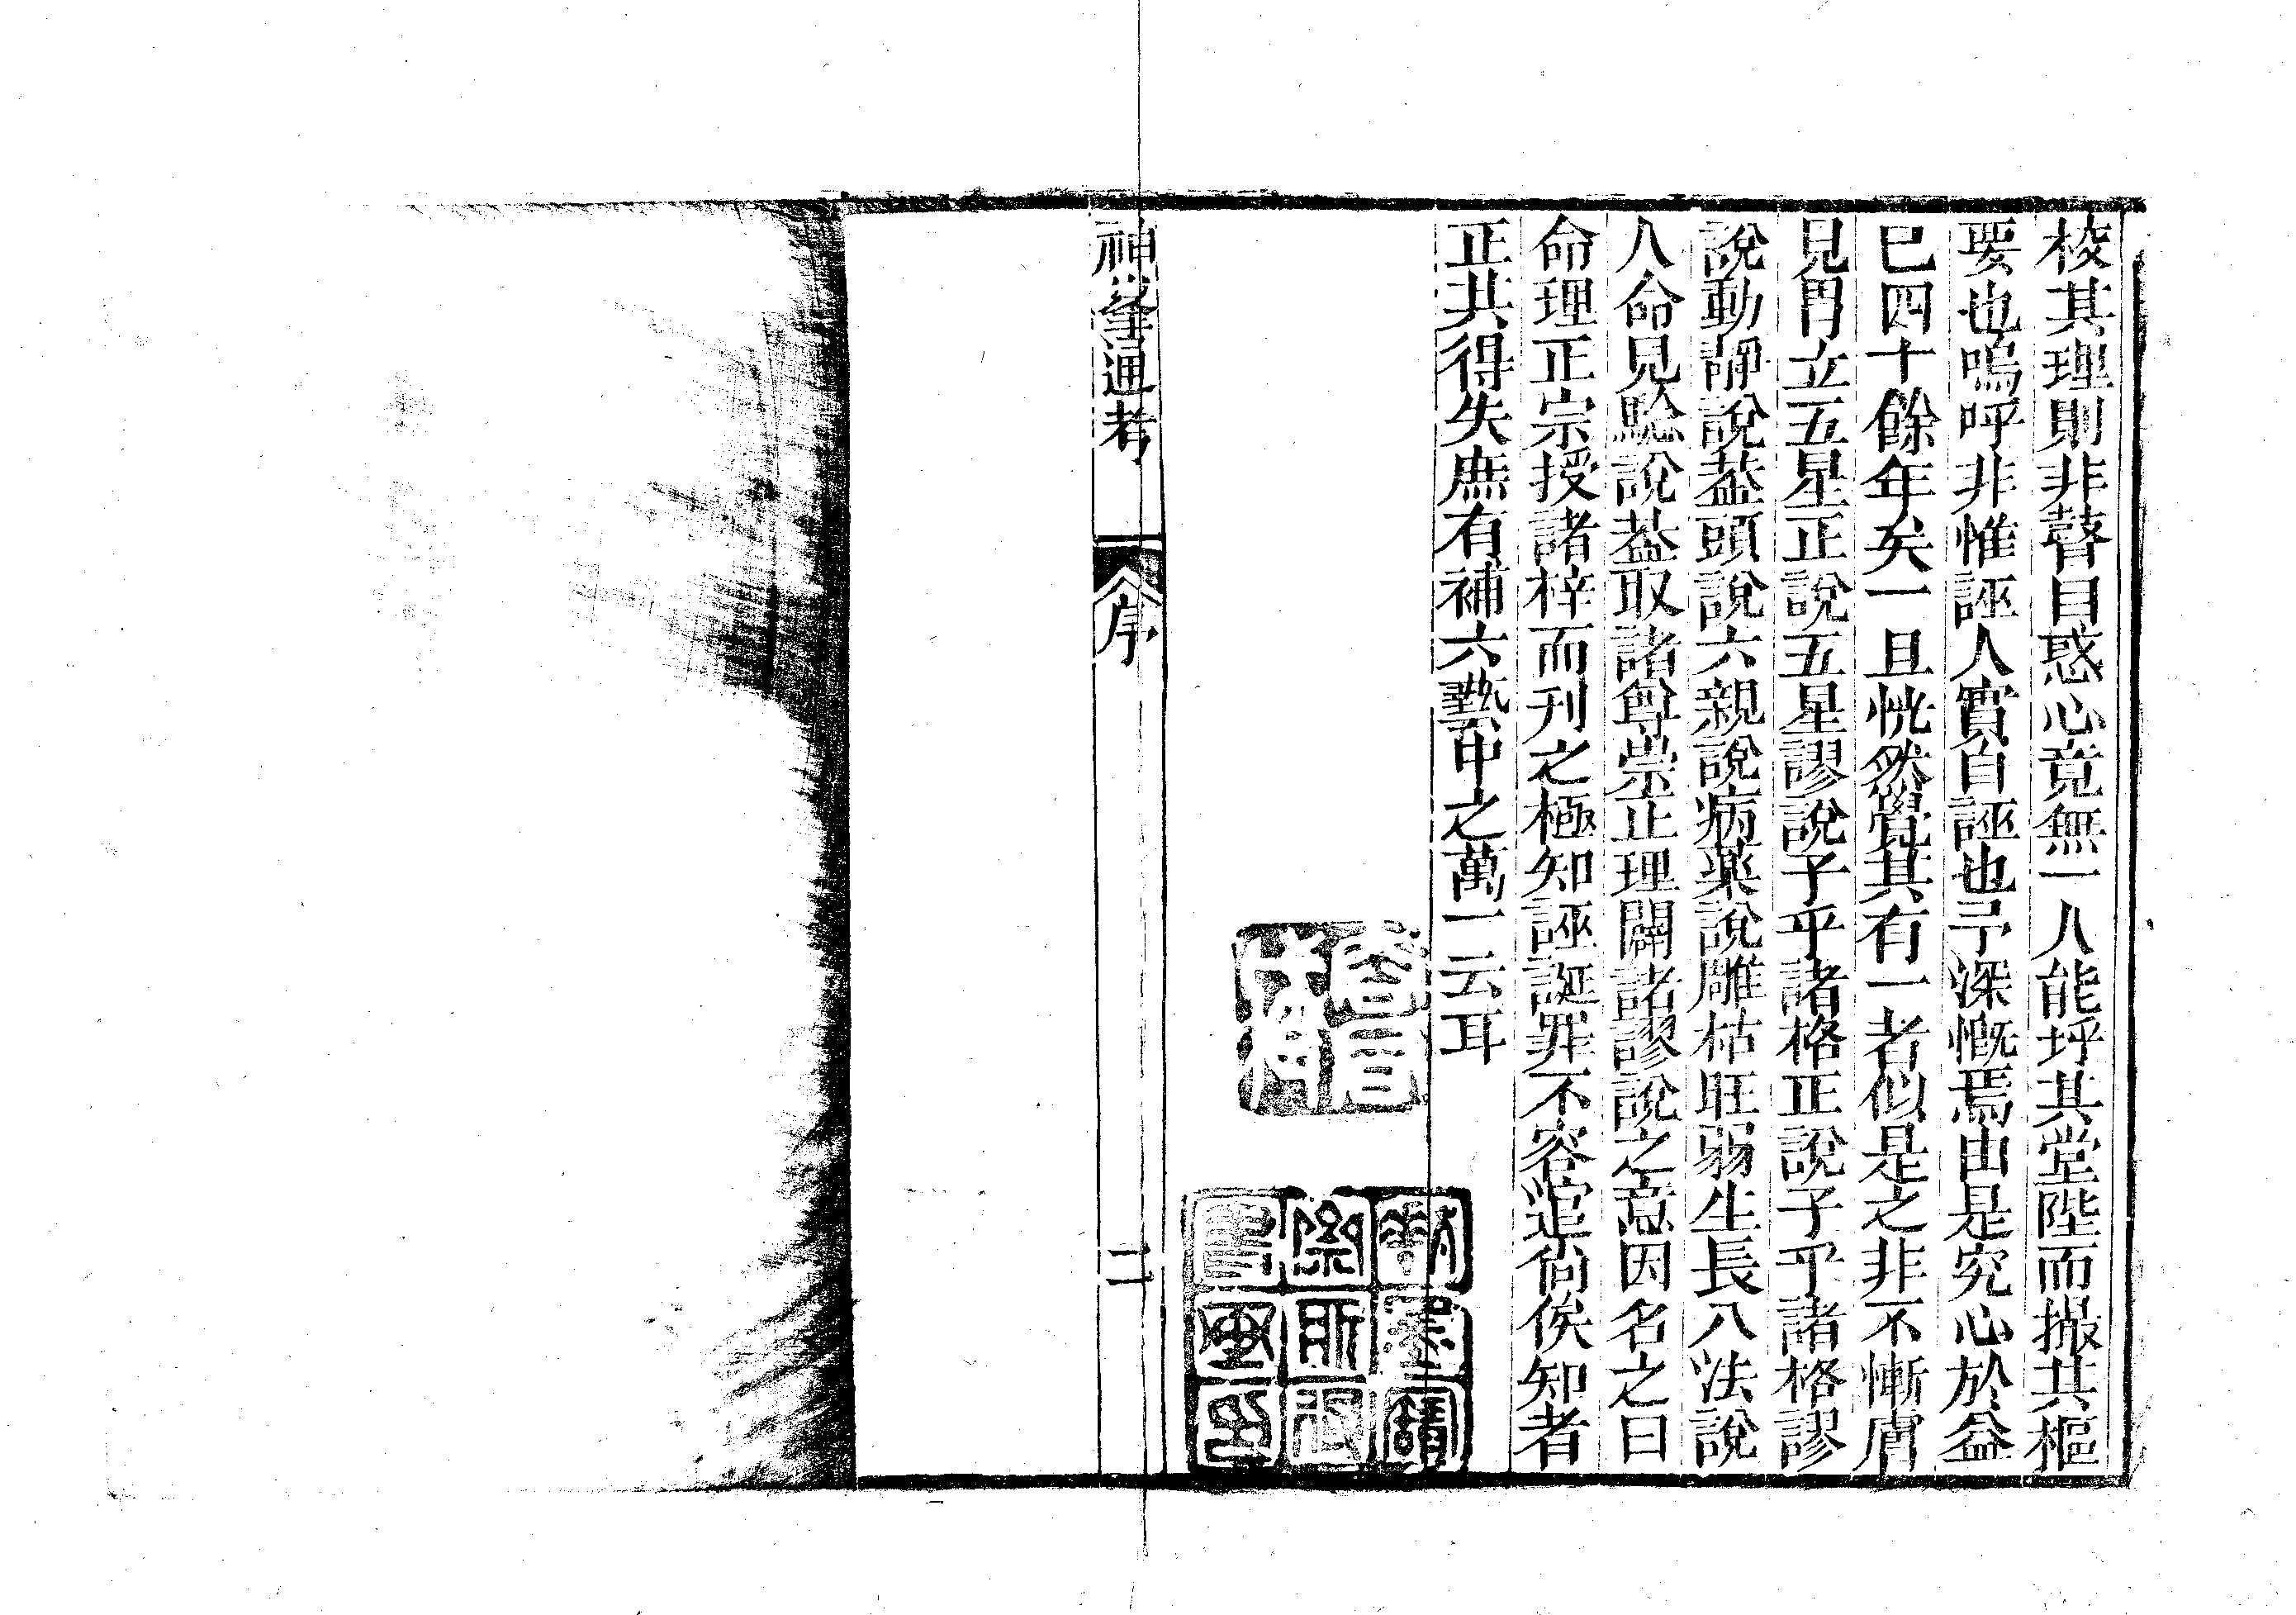 校其理則非瞽目惑心竟無一人能坪其堂陛而撮其樞
要也嗚呼非惟誣人實自誣也予深慨焉由是究心於益
已四十餘年矣一旦恍然覺其有一者似是之非不慚膚
見門立五星正說五星謬說子平諸格正說子平諸格謬
說動靜說葢頭說六親說病藥說雕枯旺弱生長八法說
人命見驗說葢取諸尊崇正理闢諸謬說之意因名之曰
命理正宗授諸梓而刊之極知誣誕罪不容逭尚俟知者
正其得失庶有補六藝中之萬一云耳
神峯通考
序
二